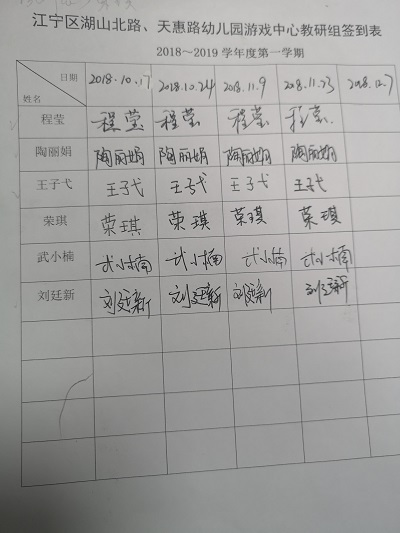 江宁区湖山北路、天惠路幼儿园游戏中心教研组签到表
2018～2019 学年度第一学期
日期 2018.10.17 2018.10.24 2018.11.9 2018.11.23 2018.12.7
姓名
程莹 程莹 程莹 程莹 程莹
陶丽娟 陶丽娟 陶丽娟 陶丽娟 陶丽娟
王子弋 王子弋 王子弋 王子弋 王子弋
荣琪 荣琪 荣琪 荣琪 荣琪
武小楠 武小楠 武小楠 武小楠 武小楠
刘廷新 刘廷新 刘廷新 刘廷新 刘廷新